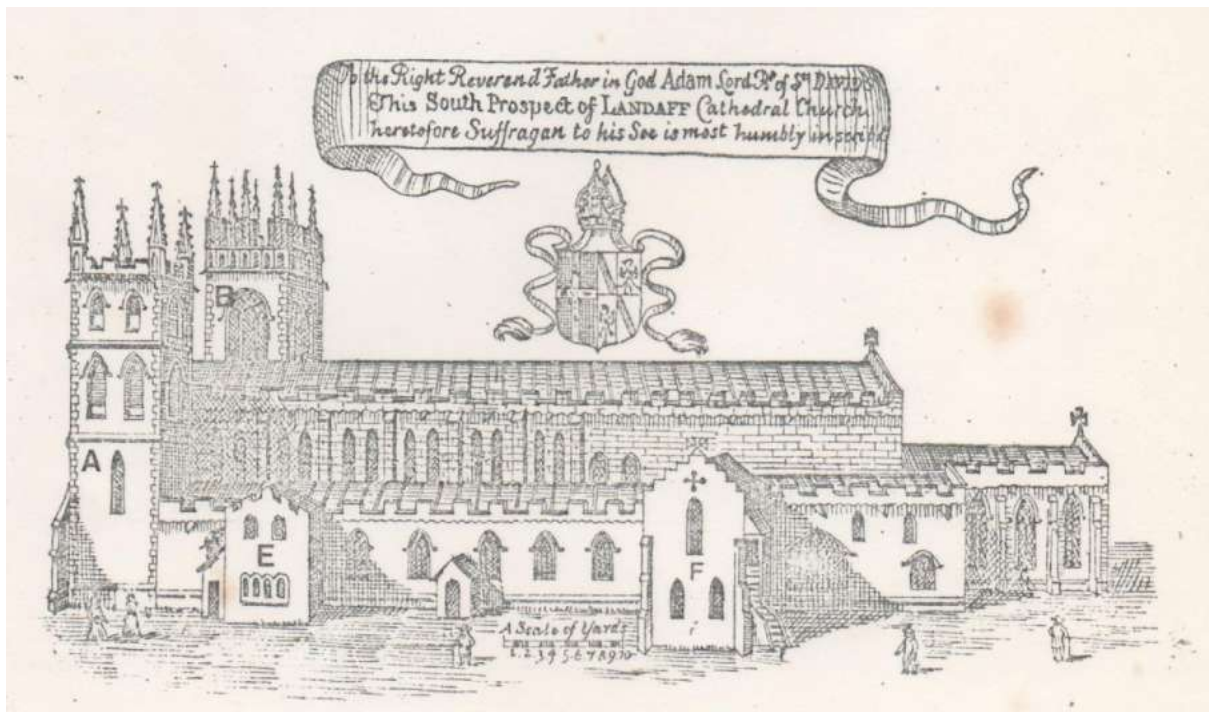 To the Right Reverend Father in God Adam Lord Bp of St DAVID'S
This South Prospect of LANDAFF Cathedral Church
heretofore Suffragan to his See is most humbly inscrib'd
B
A
E
F
A Scale of Yards
1 2 3 4 5 6 7 8 9 10